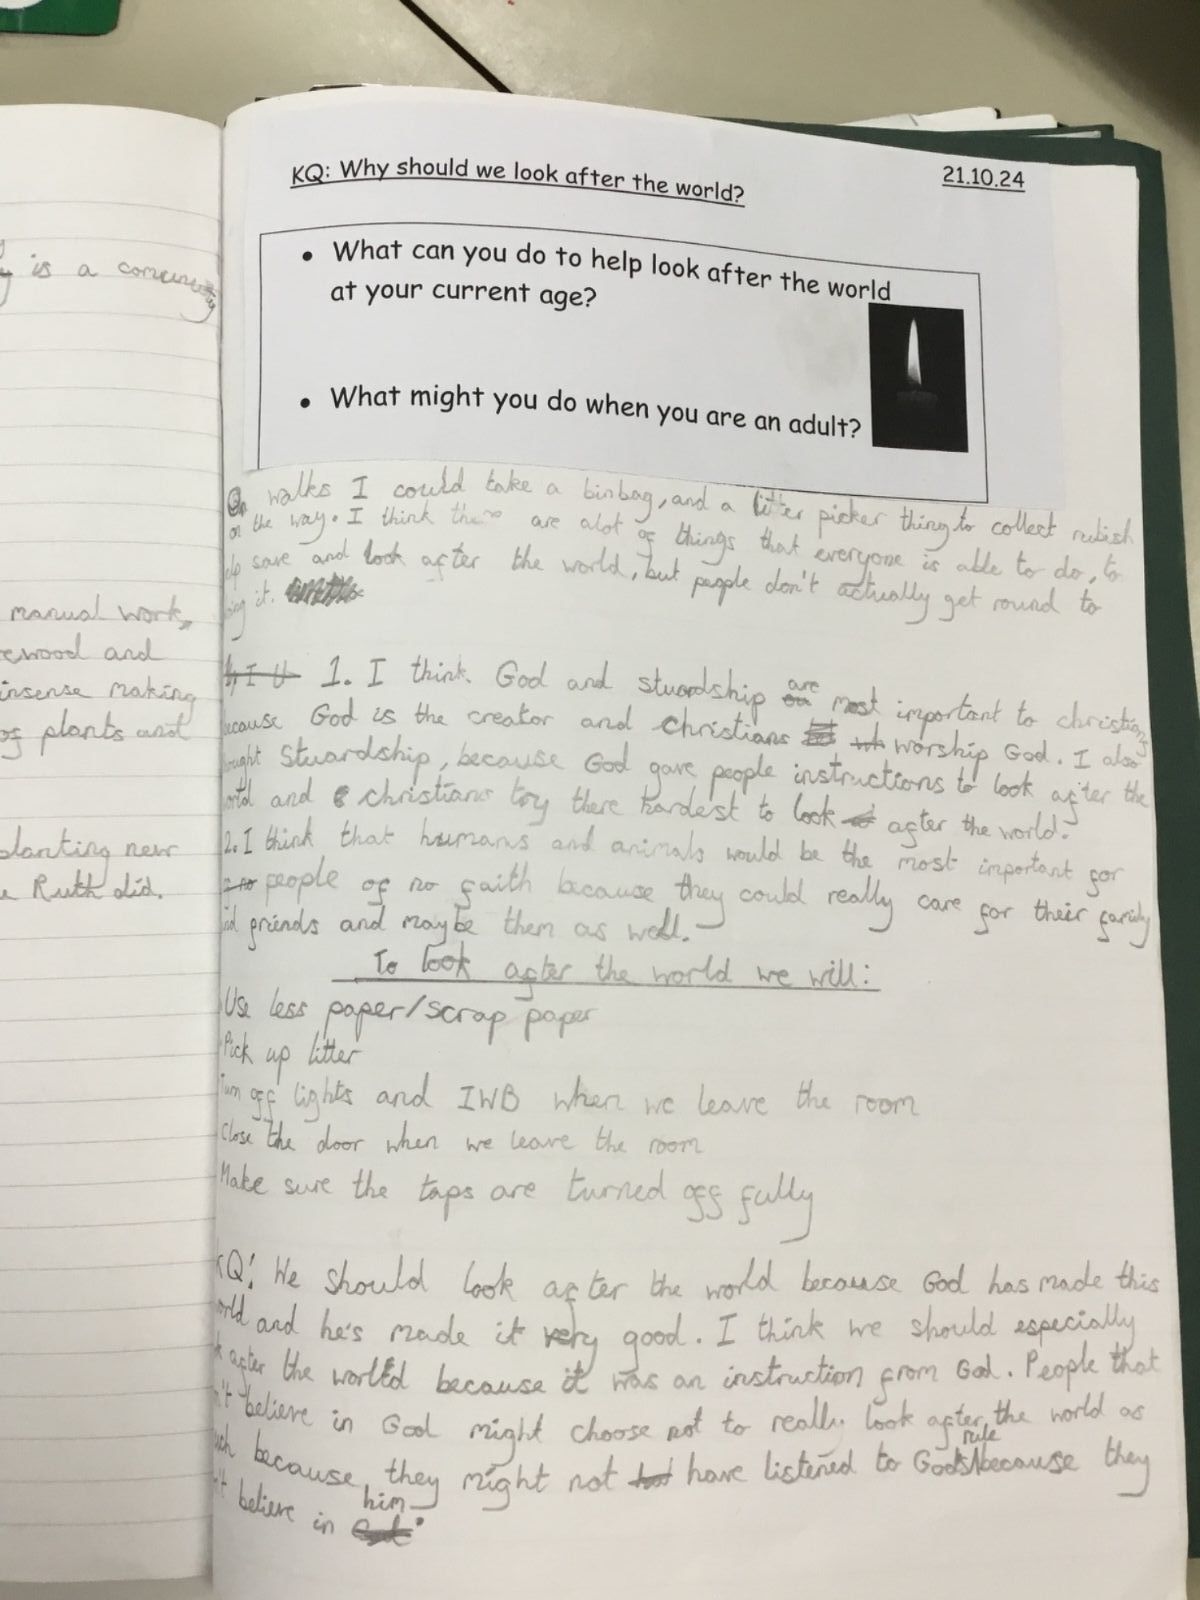 is a
manual work,
rewood and
insense making
of plants and
planting new
e Ruth did.
KQ: Why should we look after the world?
21.10.24
• What can you do to help look after the world
at your current age?
• What might you do when you are an adult?
On walks I could take a binbag, and a litter picker thing to collect rubish
on the way. I think there are alot of things that everyone is able to do, to
save and look after the world, but people don't actually get round to
it.
1. I think God and stuardship are most important to christians
because God is the creator and Christians worship God. I also
Stuardship, because God gave people instructions to look after the
and christians try there hardest to look after the world.
2. I think that humans and animals would be the most important for
people of no faith because they could really care for their family
friends and maybe them as well.
To look after the world we will:
Use less paper/scrap paper
Pick up litter
Turn off lights and IWB when we leave the room
Close the door when we leave the room
Make sure the taps are turned off fully
KQ: We should look after the world because God has made this
world and he's made it very good. I think we should especially
after the world because it was an instruction from God. People that
believe in God might choose not to really look after the world as
because they might not have listened to God's rule because they
believe in him.